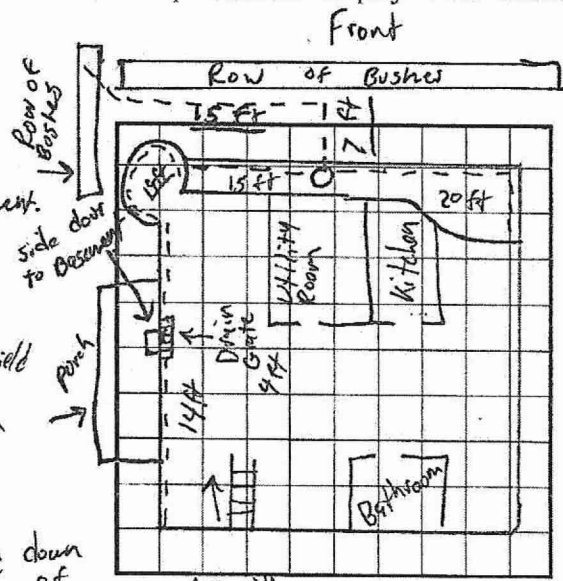 Front
Row of Bushes
Row of
Bushes
15 ft
7 ft
15 ft
20 ft
side door
to Basement
Utility
Room
Kitchen
Drain
Grate
4 ft
Porch
14 ft
Bathroom
down
of